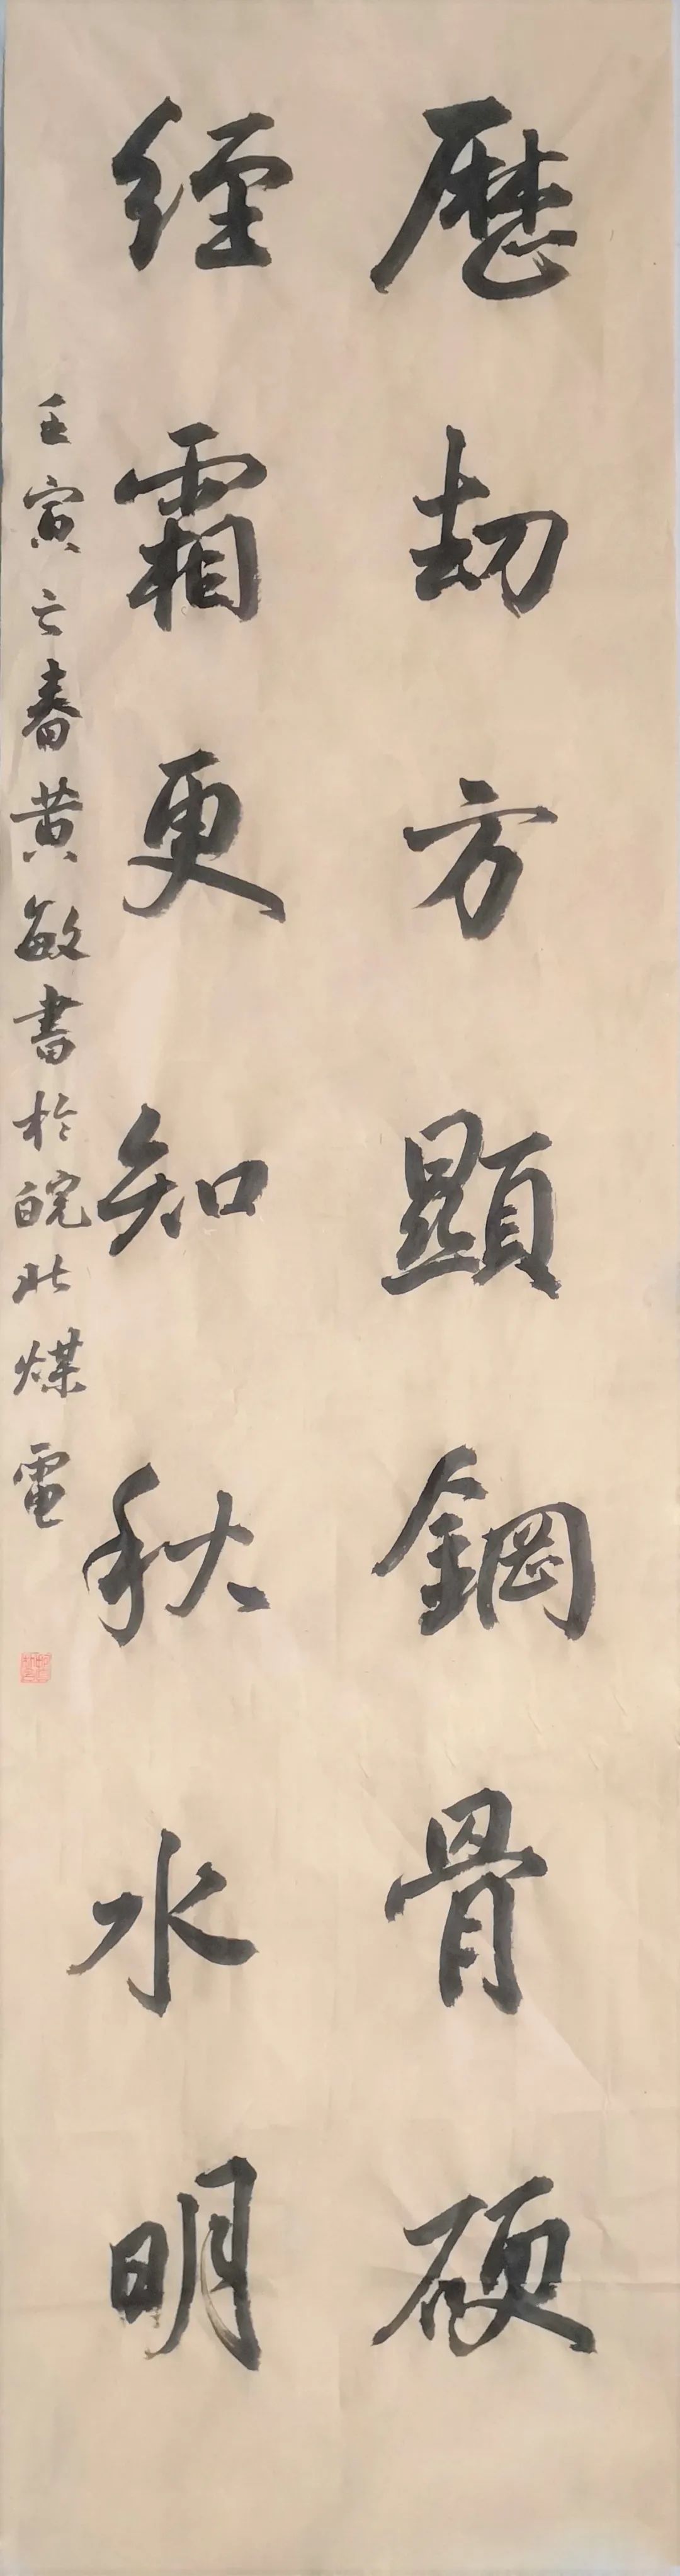 歷劫方顯鋼骨硬
經霜更知秋水明
壬寅亡春黄敏書於皖北煤電